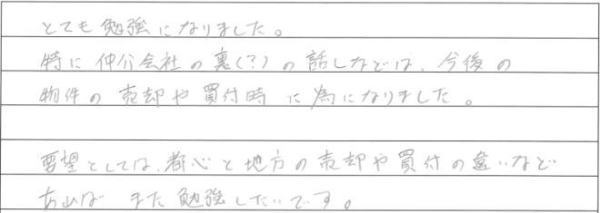 とても勉強になりました。
特に仲介会社の裏(?)の話しなどは、今後の
物件の売却や買付時に為になりました。
要望としては、都心と地方の売却や買付の違いなど
あれば また勉強したいです。